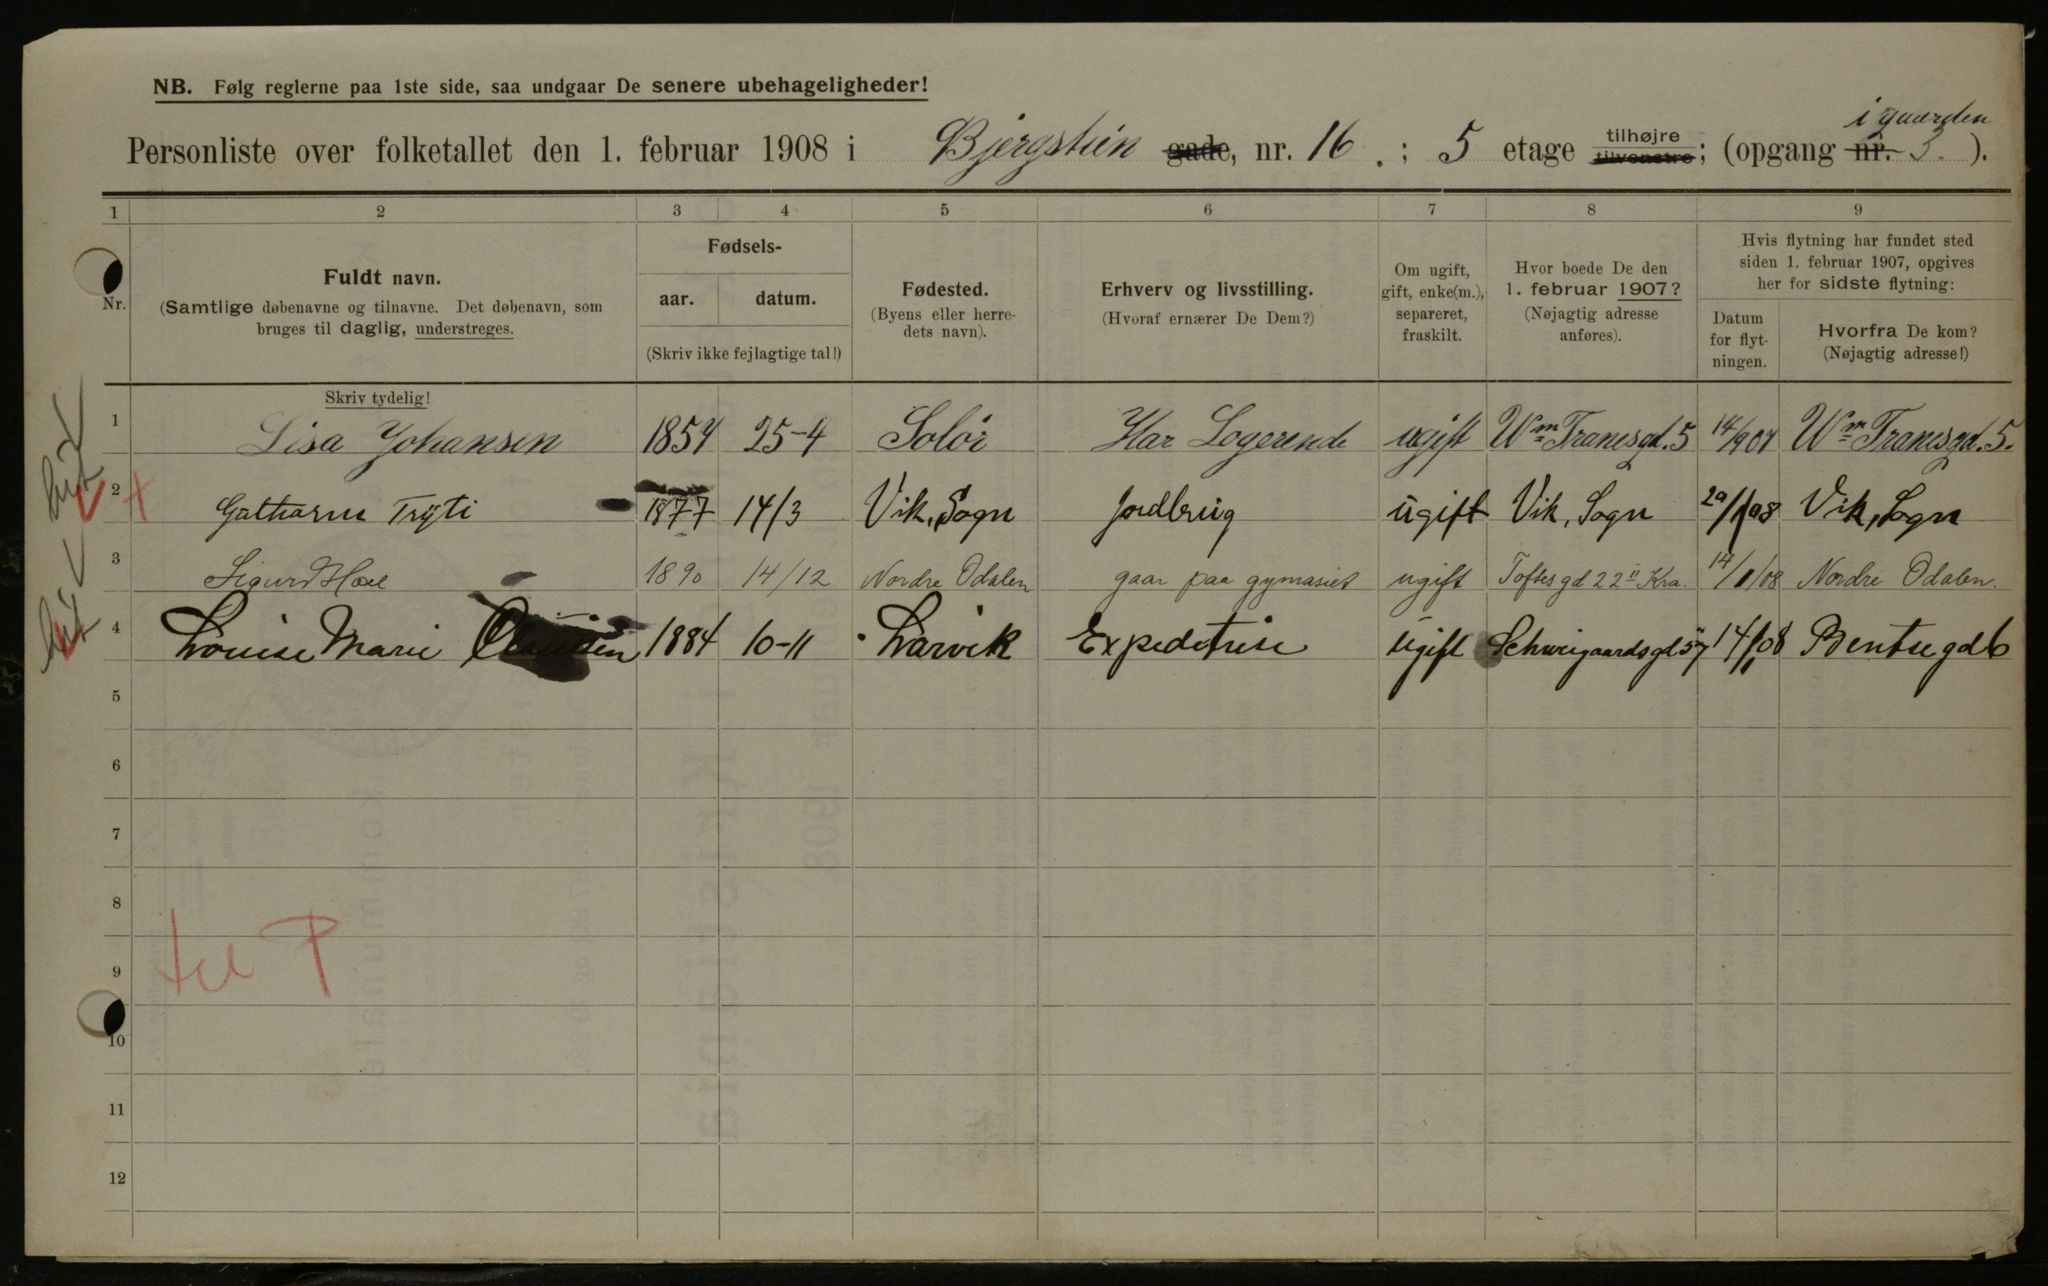 NB. Følg reglerne paa 1ste side, saa undgaar De senere ubehageligheder!
i gaarden
Personliste over folketallet den 1. februar 1908 i Bjergstien gade, nr. 16. ; 5 etage tilhøjre tilvenstre; (opgang nr. 3. ).
1 2 3 4 5 6 7 8 9
Nr.
Fuldt navn.
(Samtlige døbenavne og tilnavne. Det døbenavn, som
bruges til daglig, understreges.
Fødsels-
aar. datum.
(Skriv ikke fejlagtige tal!)
Fødested.
(Byens eller herre-
dets navn).
Erhverv og livsstilling.
(Hvoraf ernærer De Dem?)
Om ugift,
gift, enke(m.),
separeret,
fraskilt.
Hvor boede De den
1. februar 1907?
(Nøjagtig adresse
anføres).
Hvis flytning har fundet sted
siden 1. februar 1907, opgives
her for sidste flytning:
Datum
for flyt-
ningen.
Hvorfra De kom?
(Nøjagtig adresse!)
Skriv tydelig!
1 Lisa Johansen 1854 25-4 Solör Har Logerende ugift Wm Tranesgd. 5 14/9 07 Wm Tranesgd. 5.
2 Trÿti 1877 14/3 Vik, Sogn Jordbrug ugift Vik, Sogn /1 08 Vik, Sogn
3 Sigurd Hoel 1890 14/12 Nordre Odalen gaar paa gymasiet ugift Toftes gd 22 II Kra. 14/1/08 Nordre Odalen.
4 Louise Marie Clausen 1884 10-11 Larvik Expeditrise ugift Schweigaardsgd 57 14/1 08 Bentsegd 6
5
6
7
8
9
til P
10
11
12